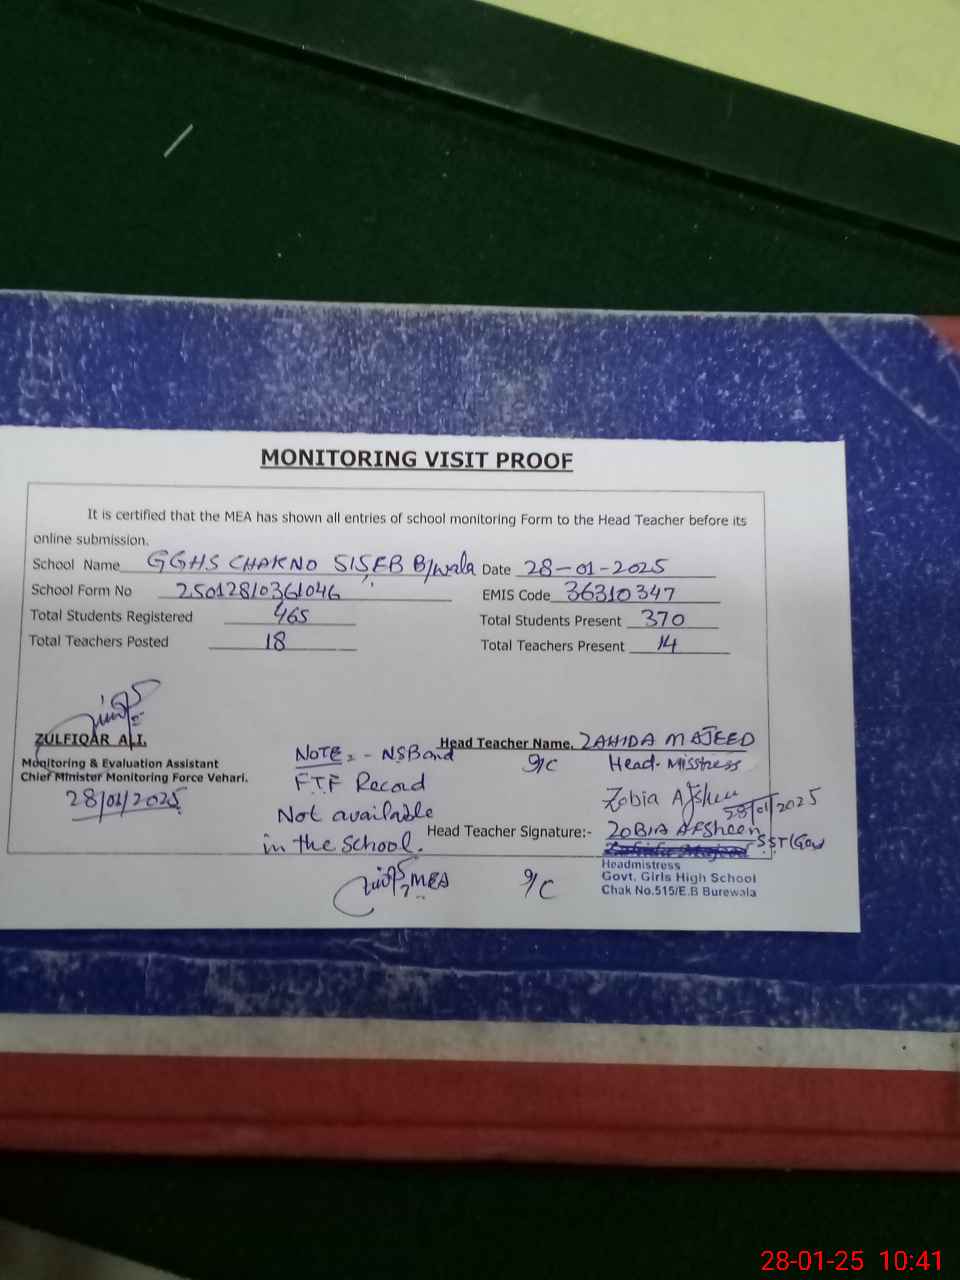 MONITORING VISIT PROOF
It is certified that the MEA has shown all entries of school monitoring Form to the Head Teacher before its
online submission.
School Name GGHS CHAK NO 515,EB B/wala Date 28-01-2025
School Form No 25012810361046 EMIS Code 36310347
Total Students Registered 465 Total Students Present 370
Total Teachers Posted 18 Total Teachers Present 14
ZULFIQAR ALI.
Monitoring & Evaluation Assistant
Chief Minister Monitoring Force Vehari.
28/01/2025
NOTE:- NSB and
F.T.F Record
Not available
in the School.
MEA
Head Teacher Name. ZAHIDA MAJEED
I/C Head-Misstress
Zobia Afsheen
28/01/2025
Head Teacher Signature:- ZOBIA AFSheen
SST(Gov
Headmistress
Govt. Girls High School
I/C Chak No.515/E.B Burewala
28-01-25 10:41